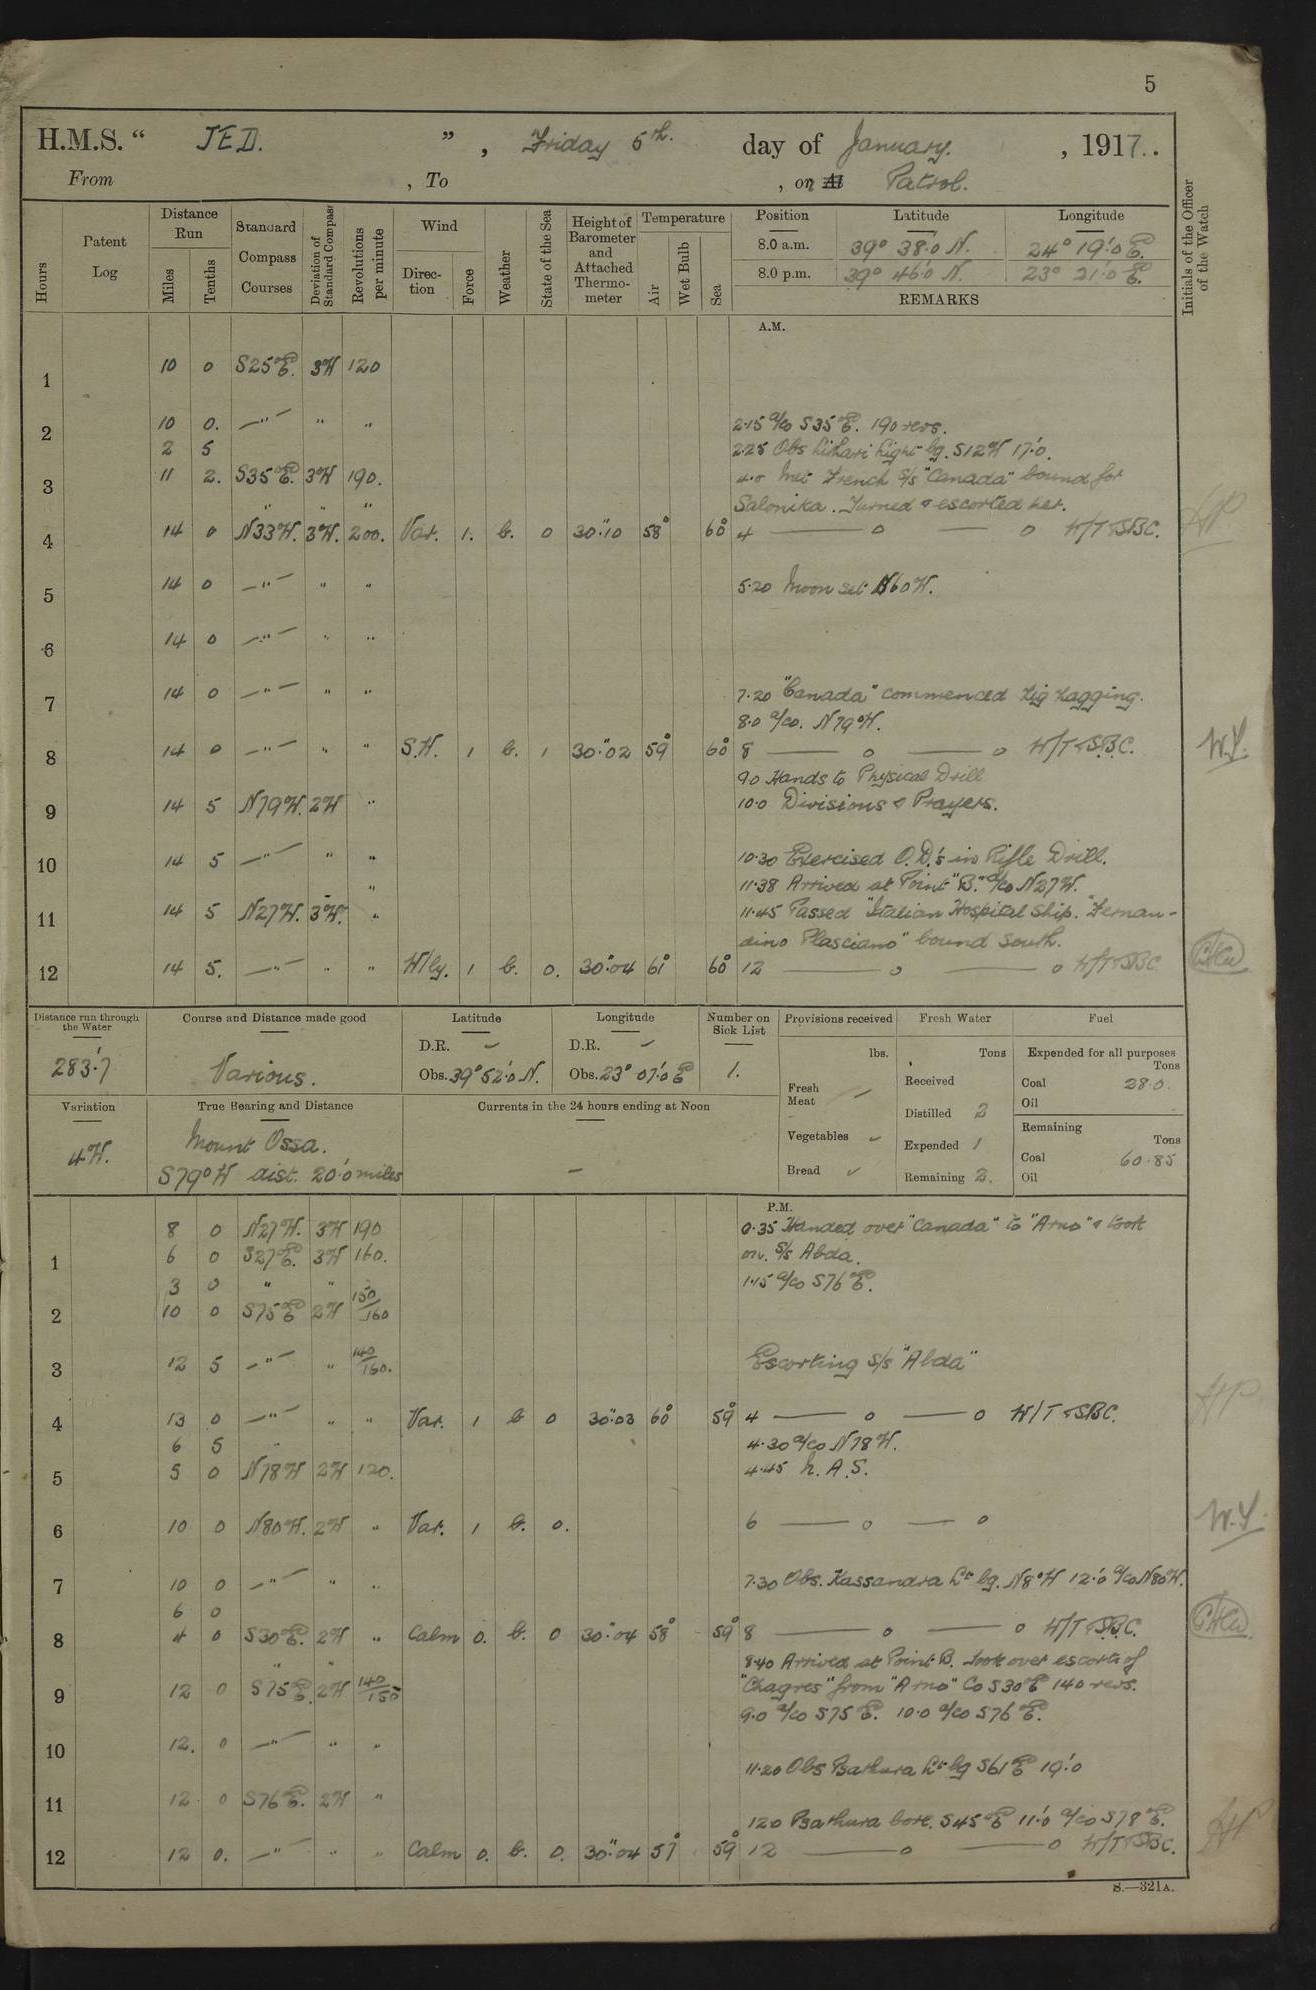 5
H.M.S. “ JED. ” , Friday 5th. day of January. , 1917..
From , To , or At Patrol.
Hours
Patent Log
Distance Run
Miles
Tenths
Standard Compass Courses
Deviation of Standard Compass
Revolutions per minute
Wind
Direction
Force
Weather
State of the Sea
Height of Barometer and Attached Thermometer
Temperature
Air
Wet Bulb
Sea
Position Latitude Longitude
8.0 a.m. 39° 38'.0 N. 24° 19'.0 E.
8.0 p.m. 39° 46'.0 N. 23° 21'.0 E.
REMARKS
Initials of the Officer of the Watch
A.M.
1 10 0 S25°E. 3W 120
2 10 0. —"— " "
2.15 a/co S35°E. 190 revs.
2 5
2.25 Obs Lihari Light bg. S12W 17'.0.
3 11 2. S35°E. 3W 190.
4.0 Met French S/s "Canada" bound for
Salonika. Turned & escorted her.
" " "
4 14 0 N33W. 3W. 200. Var. 1. b. 0 30".10 58° 60° 4 — o — o W/T & SBC.
5 14 0 —"— " " 5.20 Moon set N60W.
6 14 0 —"— " "
7 14 0 —"— " " 7.20 "Canada" commenced zig zagging.
8.0 a/co. N79°W.
8 14 0 —"— " " S.W. 1 b. 1 30".02 59° 60° 8 — o — o W/T & S.B.C. W.S.
9.0 Hands to Physical Drill
9 14 5 N79W. 2W " 10.0 Divisions & Prayers.
10 14 5 —"— " " 10.30 Exercised O.D.'s in Rifle Drill.
11.38 Arrived at Point "B." a/co N27W.
11 14 5 N27W. 3W. " 11.45 Passed Italian Hospital Ship. "Fernan-
dino Plasciano" bound South.
12 14 5. —"— " " W'ly. 1 b. 0. 30".04 61° 60° 12 — o — o W/T & SBC
Distance run through the Water
283'.7
Course and Distance made good
Various.
Latitude
D.R. ✓
Obs. 39° 52'.0 N.
Longitude
D.R. ✓
Obs. 23° 07'.0 E
Number on Sick List
1.
Provisions received
lbs.
Fresh Meat ✓
Vegetables ✓
Bread ✓
Fresh Water
Tons
Received
Distilled 2
Expended 1
Remaining 2.
Fuel
Expended for all purposes
Tons
Coal 28.0.
Oil
Remaining
Tons
Coal 60.85
Oil
Variation
4W.
True Bearing and Distance
Mount Ossa.
S79°W dist. 20'.0 miles
Currents in the 24 hours ending at Noon
—
P.M.
8 0 N27W. 3W 190 0.35 Handed over "Canada" to "Arno" & took
1 6 0 S27°E. 3W 160. on. S/s Abda.
3 0 " " 1.15 a/co S76°E.
2 10 0 S75°E 2W 150/160
3 12 5 —"— " 140/160. Escorting S/s "Abda"
4 13 0 —"— " " Var. 1 b 0 30".03 60° 59° 4 — o — o W/T & SBC.
6 5 4.30 a/co N78W.
5 5 0 N78W 2W 120. 4.45 h. A.S.
6 10 0 N80W. 2W " Var. 1 b. 0. 6 — o — o W.S.
7 10 0 —"— " " 7.30 Obs. Kassandra Lt. bg. N8°W 12'.0 a/co N80W.
6 0
8 4 0 S30°E. 2W " Calm 0. b. 0 30".04 58° 59° 8 — o — o W/T & S.B.C.
8.40 Arrived at Point B. took over escort of
9 12 0 S75°E. 2W 140/150 "Chagres" from "Arno" Co S30°E 140 revs.
9.0 a/co S75°E. 10.0 a/co S76°E.
10 12. 0 —"— " "
11.20 Obs Bathura Lt. bg S61°E 19'.0
11 12. 0 S76°E. 2W "
12.0 Bathura bore. S45°E 11'.0 a/co S78°E.
12 12 0. —"— " " Calm 0. b. 0. 30".04 57° 59° 12 — o — o W/T & SBC.
S.—321A.